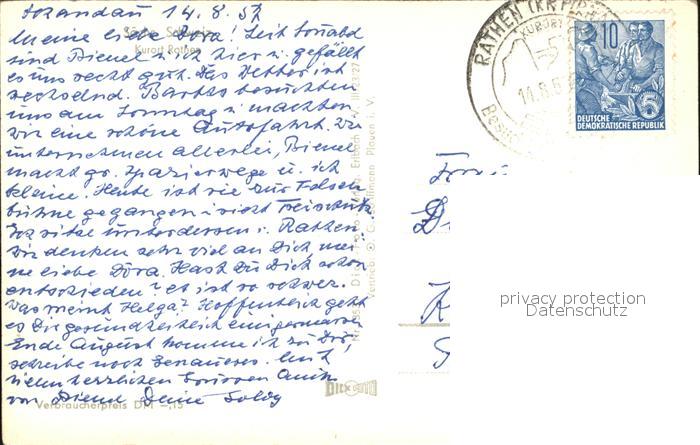 Schandau 14.8.57
Meine liebe Dora! Seit Sonnabd
sind Bienel u. ich hier u. gefällt
es uns recht gut. Das Wetter ist
wechselnd. Barths besuchten
uns am Sonntag u. machten
wir eine schöne Autofahrt. Wir
unternehmen allerlei, Bienel
macht gr. Spazierwege u. ich
kleine. Heute ist sie zur Felsen
bühne gegangen
Ich sitze unterdessen i. Rathen.
Wir denken sehr viel an Dich, mei
ne liebe Dora. Hast Du Dich schon
entschieden? es ist so schwer.
Was meint Helga? Hoffentlich geht
es Dir gesundheitlich einigermassen
Ende August komme ich zu Dir,
schreibe noch genaueres. Mit
vielen herzlichen Grüssen auch
von Bienel Deine
Kurort Rathen
Verbraucherpreis DM -,15
RATHEN
KURORT
10
5
DEUTSCHE
DEMOKRATISCHE REPUBLIK
privacy protection
Datenschutz